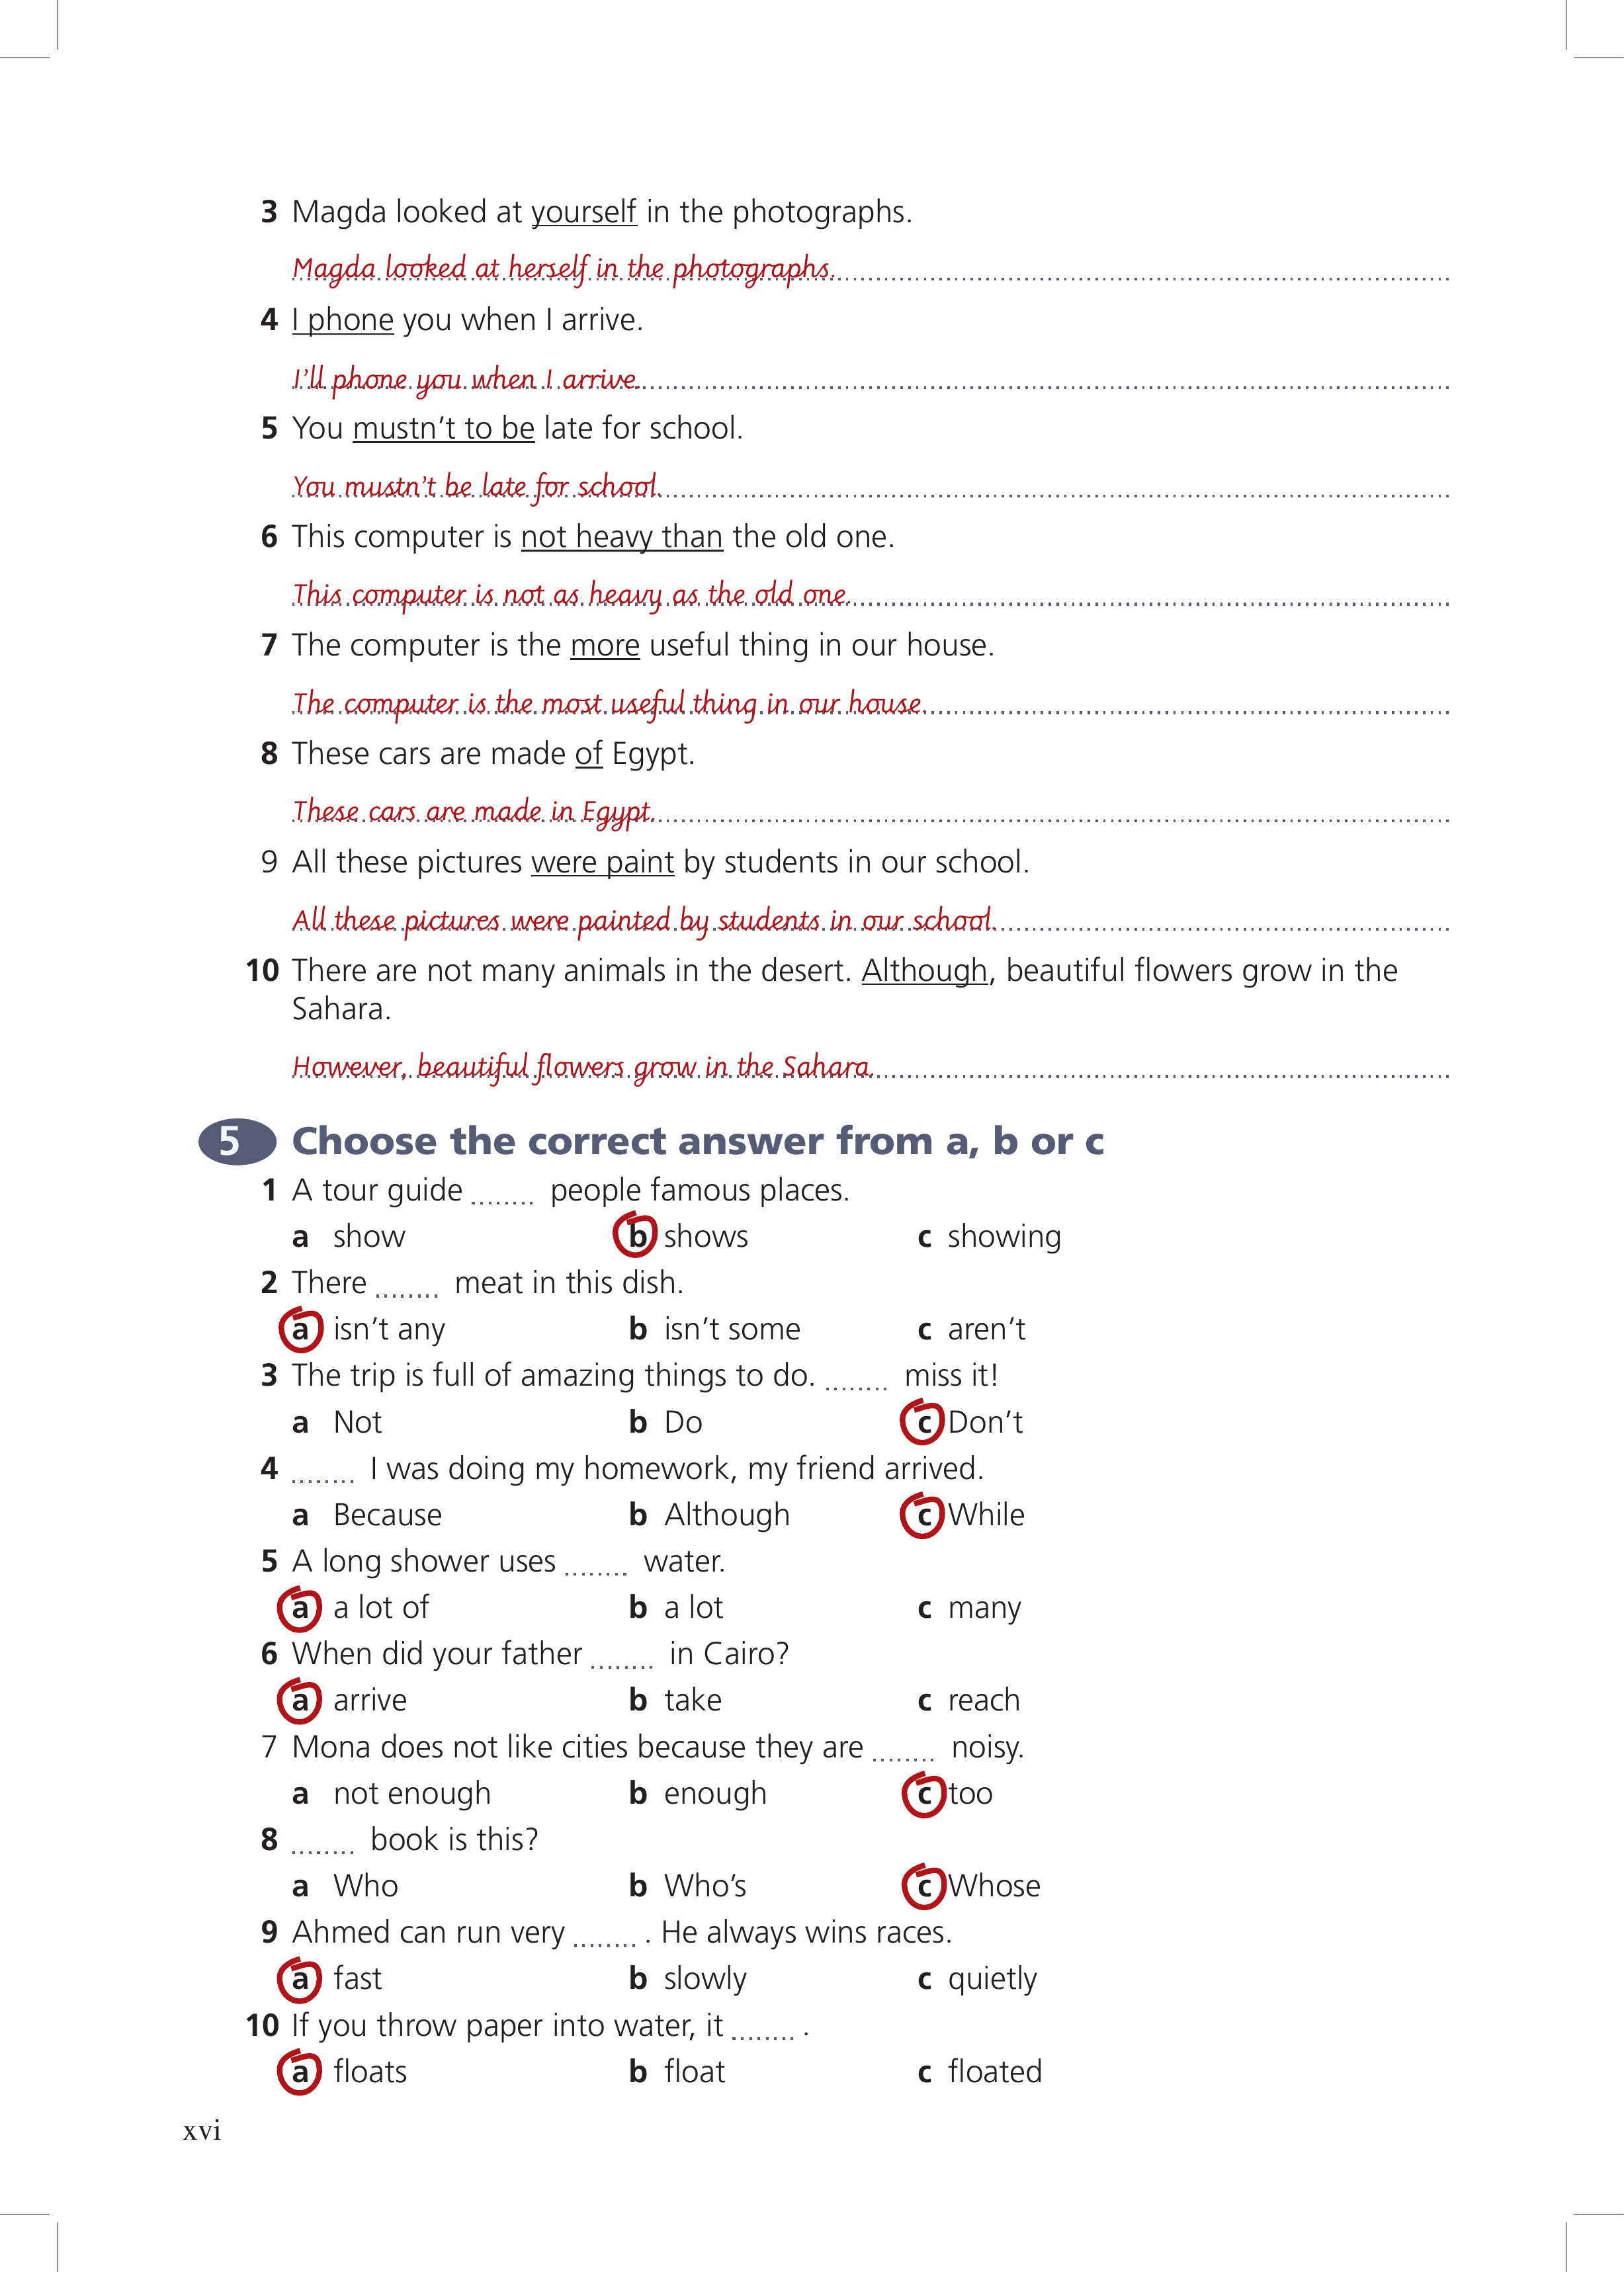 3 Magda looked at yourself in the photographs.
Magda looked at herself in the photographs.
4 I phone you when I arrive.
I'll phone you when I arrive.
5 You mustn't to be late for school.
You mustn't be late for school.
6 This computer is not heavy than the old one.
This computer is not as heavy as the old one.
7 The computer is the more useful thing in our house.
The computer is the most useful thing in our house.
8 These cars are made of Egypt.
These cars are made in Egypt.
9 All these pictures were paint by students in our school.
All these pictures were painted by students in our school.
10 There are not many animals in the desert. Although, beautiful flowers grow in the
Sahara.
However, beautiful flowers grow in the Sahara.
5 Choose the correct answer from a, b or c
1 A tour guide ........ people famous places.
a show b shows c showing
2 There ........ meat in this dish.
a isn't any b isn't some c aren't
3 The trip is full of amazing things to do. ........ miss it!
a Not b Do c Don't
4 ........ I was doing my homework, my friend arrived.
a Because b Although c While
5 A long shower uses ........ water.
a a lot of b a lot c many
6 When did your father ........ in Cairo?
a arrive b take c reach
7 Mona does not like cities because they are ........ noisy.
a not enough b enough c too
8 ........ book is this?
a Who b Who's c Whose
9 Ahmed can run very ........ . He always wins races.
a fast b slowly c quietly
10 If you throw paper into water, it ........ .
a floats b float c floated
xvi